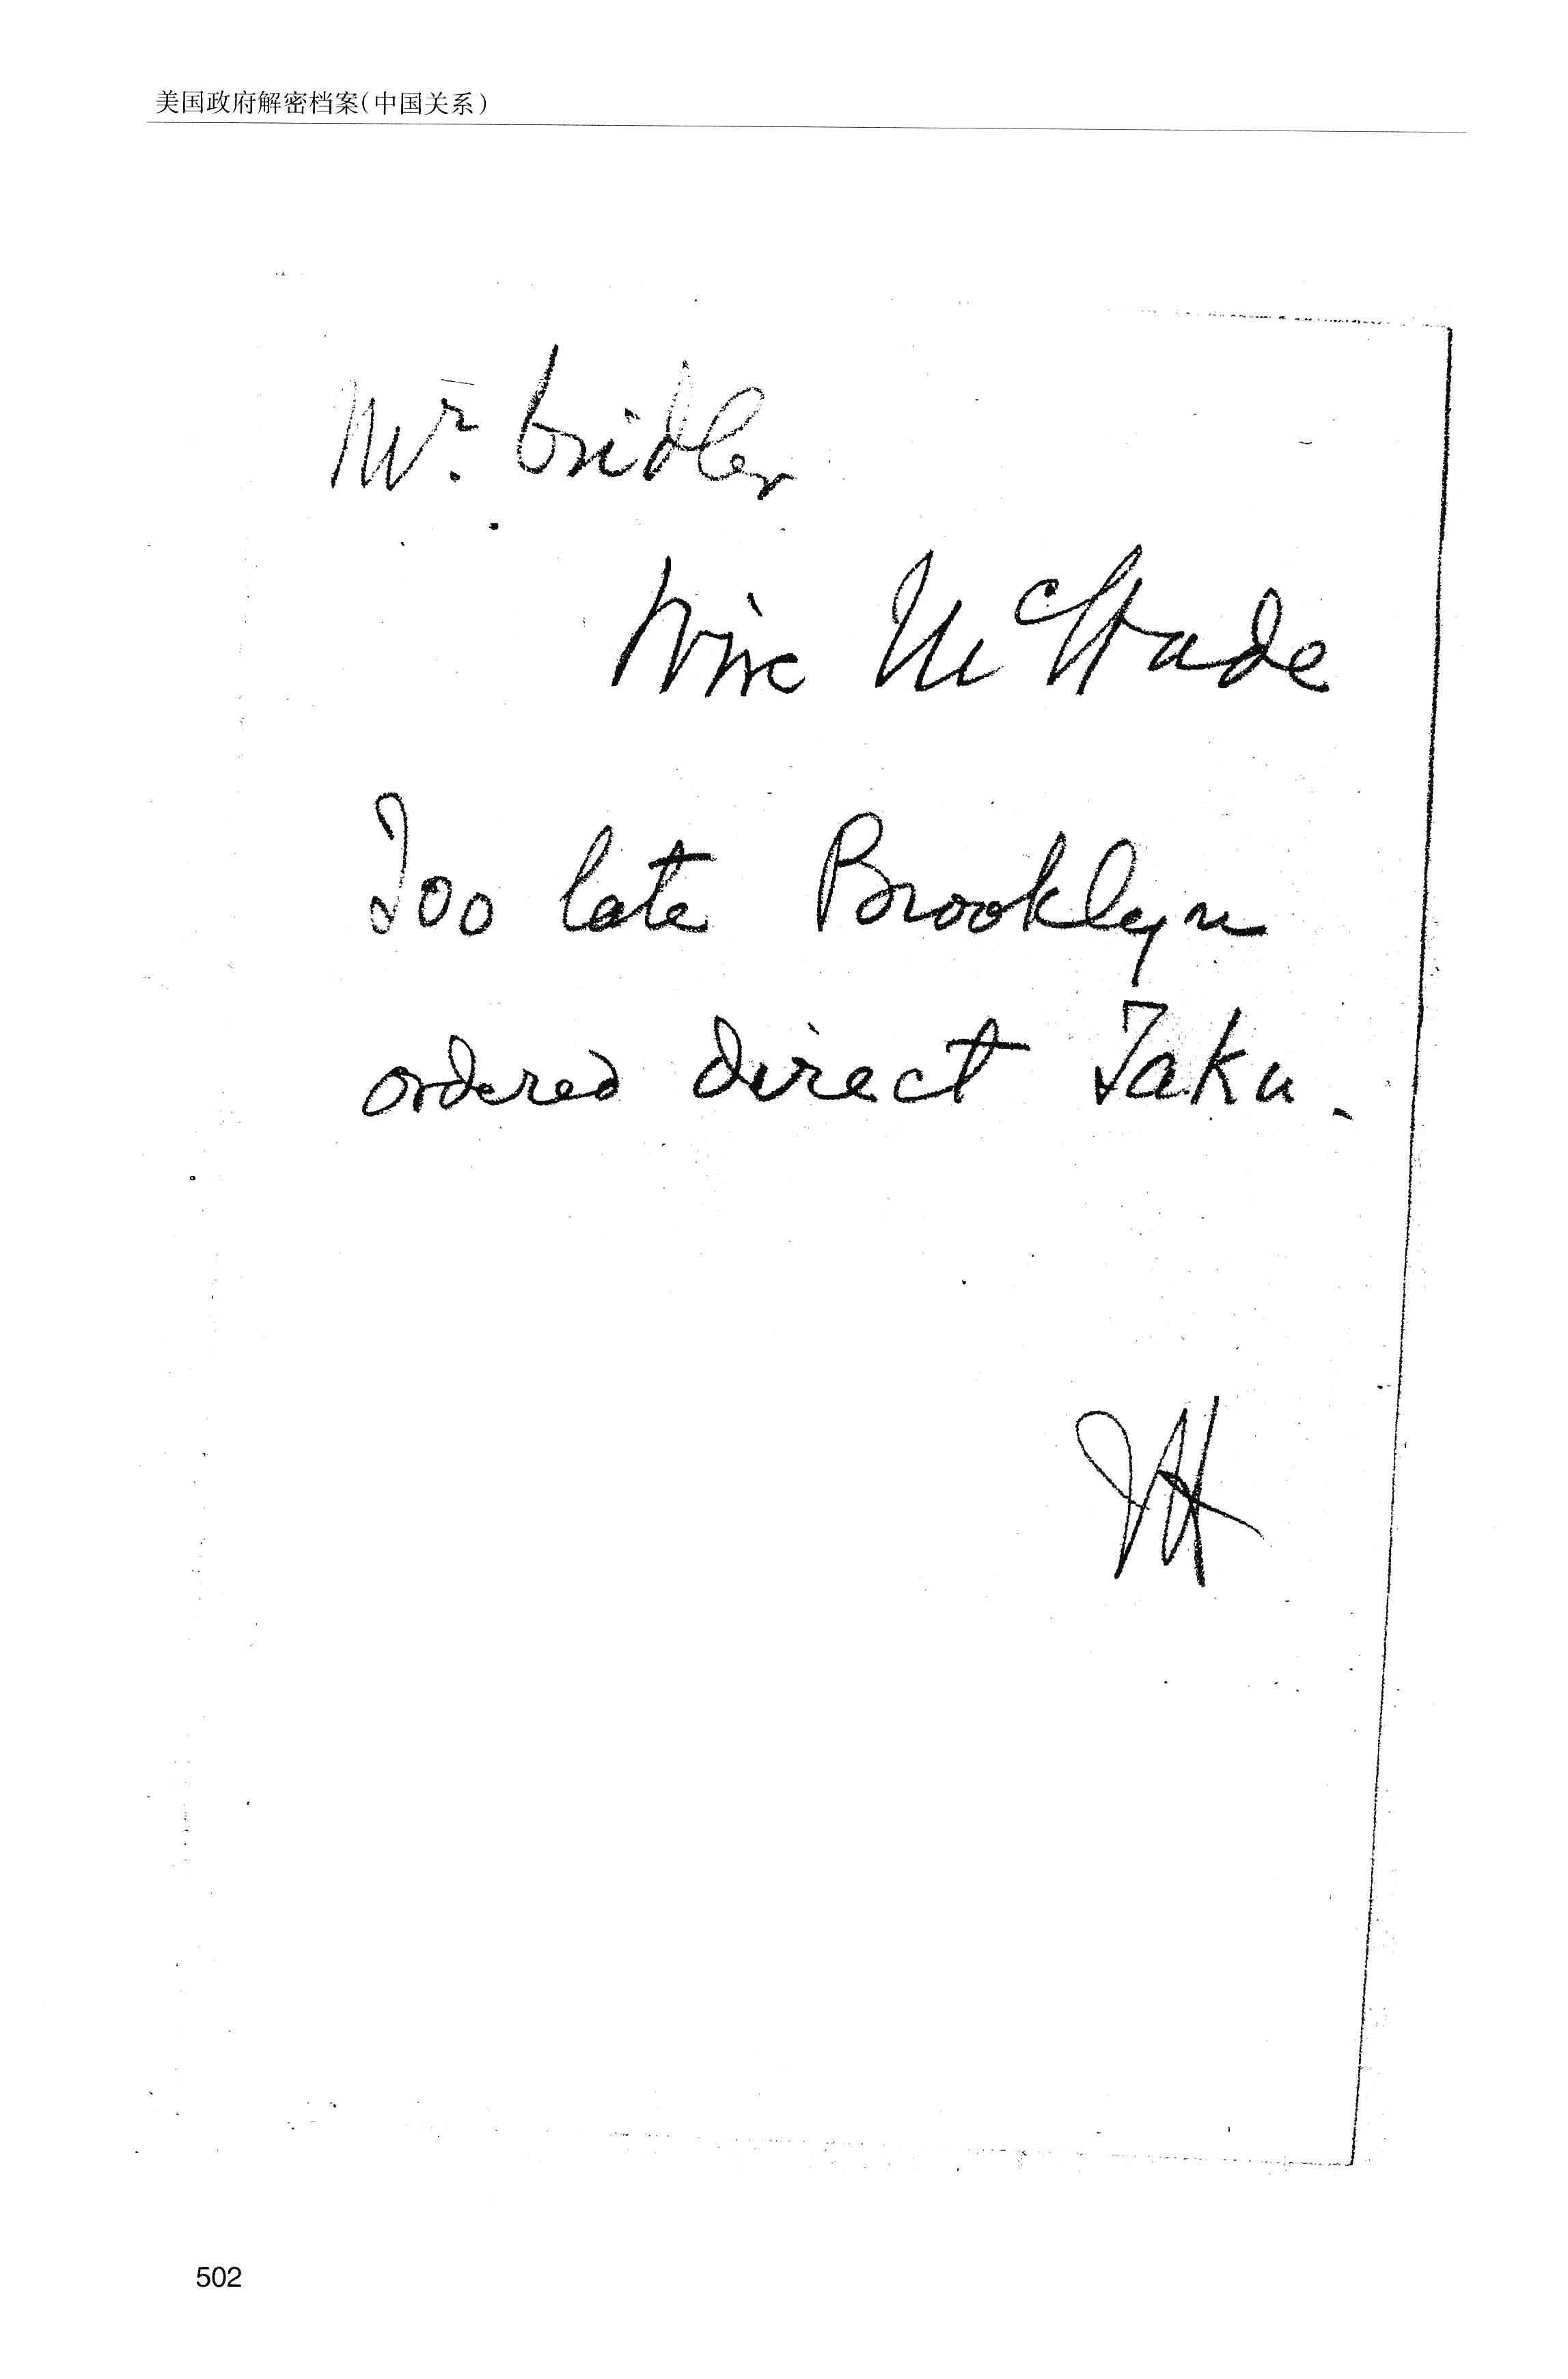 美国政府解密档案(中国关系)
Mr. Cridler
Wire McWade
Too late Brooklyn
ordered direct Taku.
502